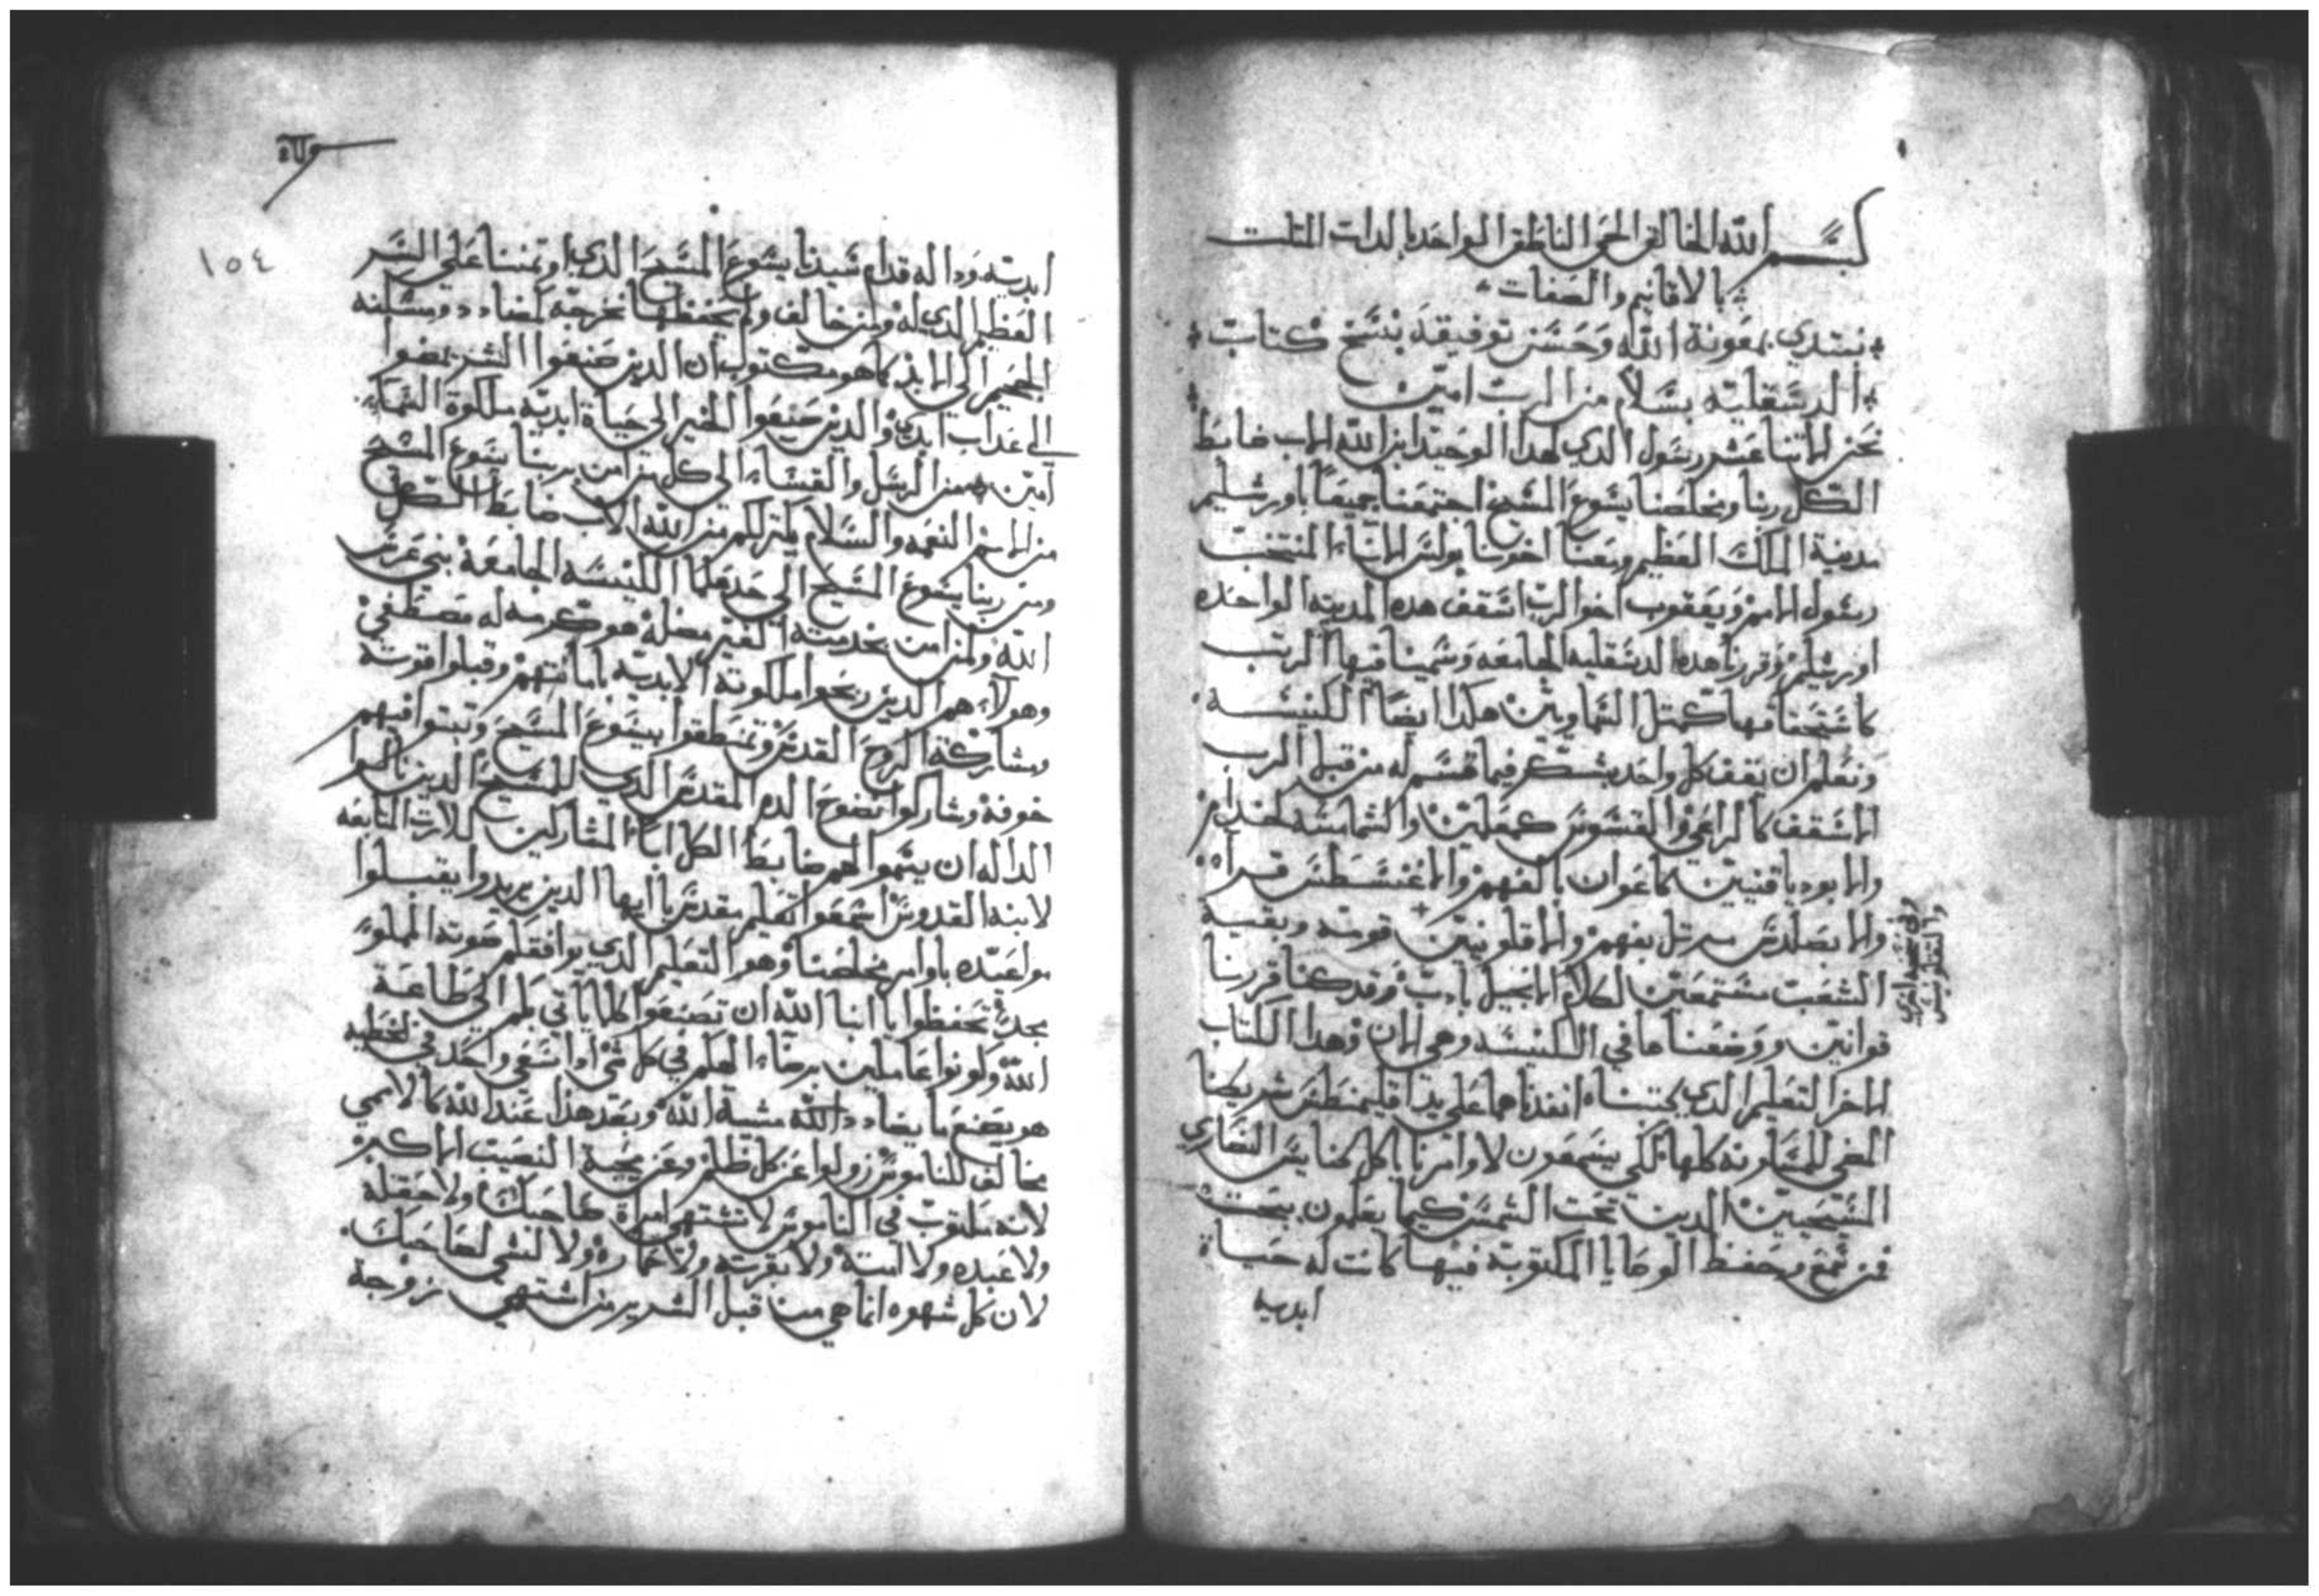 بسم الله الخالق الحي الناطق الواحد بالدات المثلث
بالاقانيم والصفات
نبتدي بمعونة الله وحسن توفيقه بنسخ كتاب
الدسقليه بسلام من الرب امين
نحن الاتنا عشر رسول الدي لهدا الوحيد ابن الله الاب ضابط
الكل ربنا ومخلصنا يسوع المسيح اجتمعنا جميعا باورشليم
مدينة الملك العظيم ومعنا اخونا بولس الاناء المنتخب
رسول الامم ويعقوب اخو الرب اسقف هده المدينه الواحده
اورشليم وقررنا هده الدسقليه الجامعه وسمينا فيها الرتب
كاستحقاقها كمثل السماويين هكدا ايضا الكنيسه
ونعلم ان يقف كل واحد بشكر فيما قسم له من قبل الرب
الاسقف كالراعي والقسوس كمعلمين والشمامسه كخدام
والابودياقنيين كاعوان بالفهم والاغنسطس قرا
والابصلدس مرتل بفهم والاقلونيين قومه وبقية
الشعب مستمعين لكلام الانجيل بادب وقد كنا قررنا
قوانين ووضعناها في الكنيسه وهي الان وهدا الكتاب
الاخر التعليم الدي كتبناه انفدناهما على يد اقليمنطس شريكنا
المضي للمسكونه كلها لكي يسمعون لاوامرنا يا كل كنايس النصاري
المسيحيين الدين تحت الشمس كيما يعلمون بحت
فمن سمع وحفظ الوصايا المكتوبة فيها كانت له حياة
ابديه
وفي نسخه اخري
والقلونيس
١٥٤
ابديه ودالة قدام سيدنا يسوع المسيح الدي اوتمنا على السر
العظيم الدي له ومن خالف ولم يحفظها نخرجه كمضادد ومسكنه
الجحيم الى الابد كما هو مكتوب ان الدين صنعوا الشر يمضوا
الى عداب ابدي والدين صنعوا الخير الى حياة ابديه ملكوة السماء
امين من الرسل والقسا الى كل من امن بربنا يسوع المسيح
من الامم النعمه والسلام يكتر لكم من الله الاب ضابط الكل
ومن ربنا يسوع المسيح الى حد علما الكنيسه الجامعة بني غرس
الله ومن امن بخدمته الغير مضله هو كرمه له مصطفي
وهولاء هم الدين ربحوا ملكوته الابديه بامانتهم وقبلوا قوته
ومشاركة الروح القدس وتمنطقوا بيسوع المسيح وتبتوا فيهم
خوفه وشاركوا نضوح الدم المقدس الدي للمسيح الدين نالوا
الداله ان يسموا لهم ضابط الكل ابا المشاركين للارت التابعه
لابنه القدوس اسمعوا تعليم مقدس يا ايها الدين يريدوا يقبلوا
مواعيده باوامر مخلصنا وهو التعليم الدي يوافق كلم صوته المملو
مجدا تحفظوا يا ابنا الله ان تصنعوا كلما ياتي بكم الى طاعة
الله وكونوا عاملين برضاء المعلم في كل شي ادا سعي واحد في الخطيه
هو يصنع ما يضادد الله مشية الله ويعد هدا عند الله كالاممي
مخالف للناموس زولوا عن كل ظلم وعن محبة النصيب الاكبر
لانه مكتوب في الناموس لا تشتهي امراة صاحبك ولا حقله
ولا عبده ولا امته ولا بقرته ولا حماره ولا لشي لصاحبك
لان كل شهوه انما هي من قبل الشرير من اشتهي زوجة